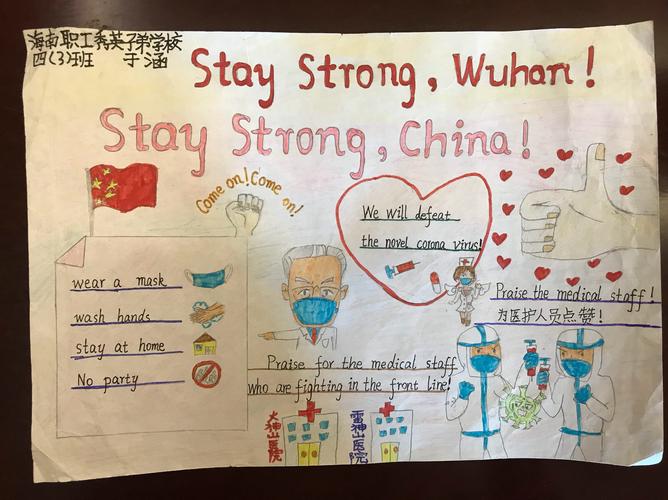 海南职工秀英子弟学校
四(3)班 于涵
Stay Strong, Wuhan!
Stay Strong, China!
Come on! Come on!
We will defeat
the novel corona virus!
wear a mask
wash hands
stay at home
No party
Praise the medical staff!
为医护人员点赞!
Praise for the medical staff
who are fighting in the front line!
火神山医院
雷神山医院